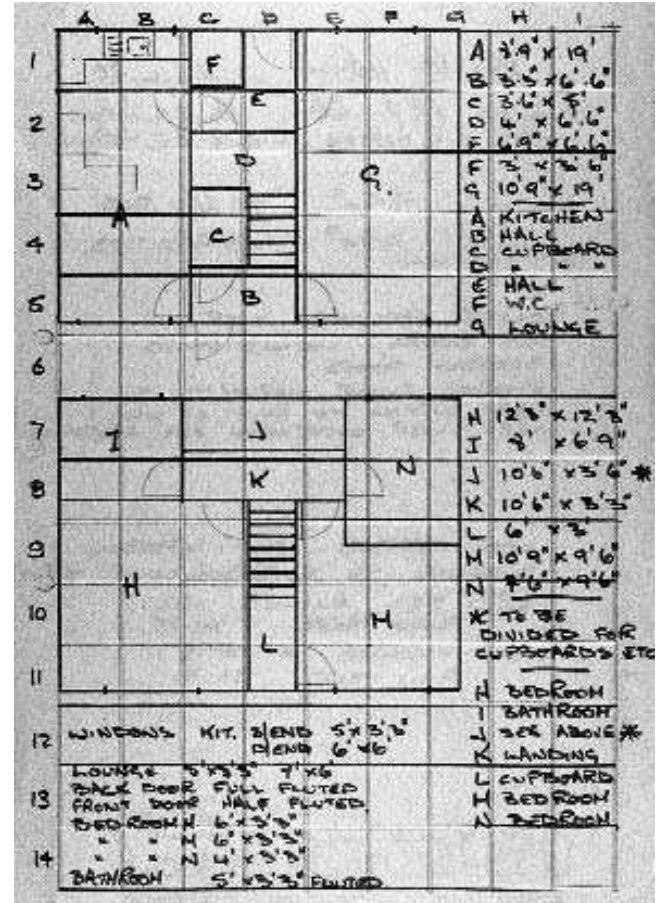 A B C D E F G H I
1
2
3
4
5
6
7
8
9
10
11
12
13
14
F
E
D
G.
A
C
B
A 9'9" x 19'
B 3'3" x 6'.6"
C 3'6" x
D 4' x 6'.6"
6'9" x 6'.6"
F 3' x 3'6"
G 10'9" x 19'
A KITCHEN
B HALL
C CUPBOARD
D " "
E HALL
F W.C.
G LOUNGE
I
J
K
N
H
L
H 12'3" x 12'3"
I 8' x 6'9"
J 10'6" x 3'6" *
K 10'6" x 3'3"
L 6' x 3'
M 10'9" x 9'6"
N x 9'6"
* TO BE
DIVIDED FOR
CUPBOARDS ETC
H BEDROOM
I BATHROOM
J SEE ABOVE *
K LANDING
L CUPBOARD
M BEDROOM
N BEDROOM
WINDOWS KIT. S/END 5' x 3'3"
D/END 6' x 6'
LOUNGE x 3'3" 7' x 6'
BACK DOOR FULL FLUTED
FRONT DOOR HALF FLUTED
BEDROOM H 6' x 3'3"
" " M 6' x 3'3"
" " N 4' x 3'3"
BATHROOM 5' x 3'3" FLUTED